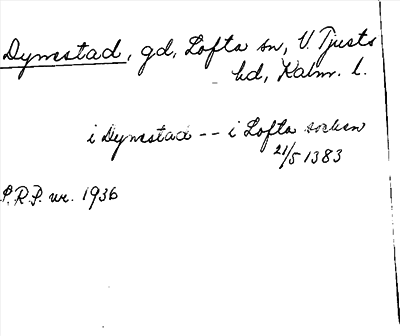 Dymstad, gd, Lofta sn, N. Tjusts
hd, Kalm. l.
i Dymstad -- i Lofta sokn
21/5 1383
P.R.P. nr. 1936